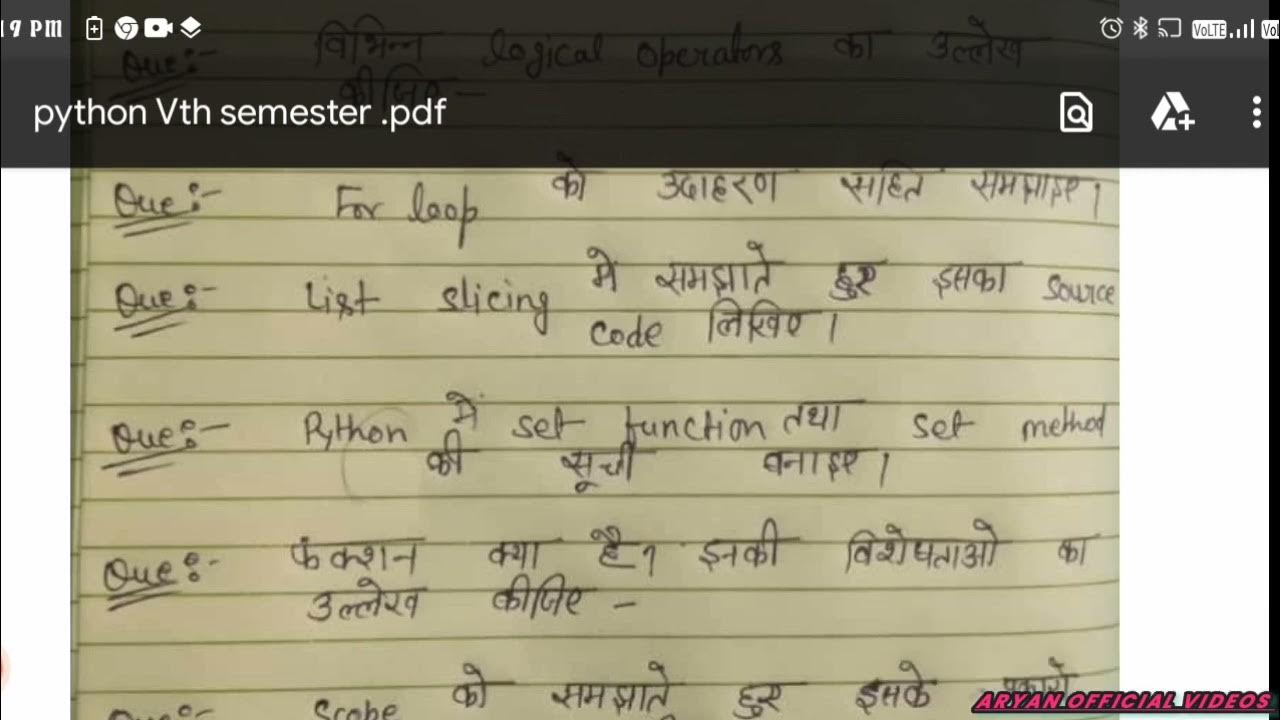 19 PM
VoLTE
Que:- विभिन्न logical operators का उल्लेख
कीजिए -
python Vth semester .pdf
Que:- For loop को उदाहरण सहित समझाइए।
Que:- List slicing में समझाते हुए इसका source
code लिखिए।
Que:- Python में set function तथा set method
की सूची बनाइए।
Que:- फंक्शन क्या है? इनकी विशेषताओ का
उल्लेख कीजिए -
Que:- Scope को समझाते हुए इसके प्रकारो
ARYAN OFFICIAL VIDEOS